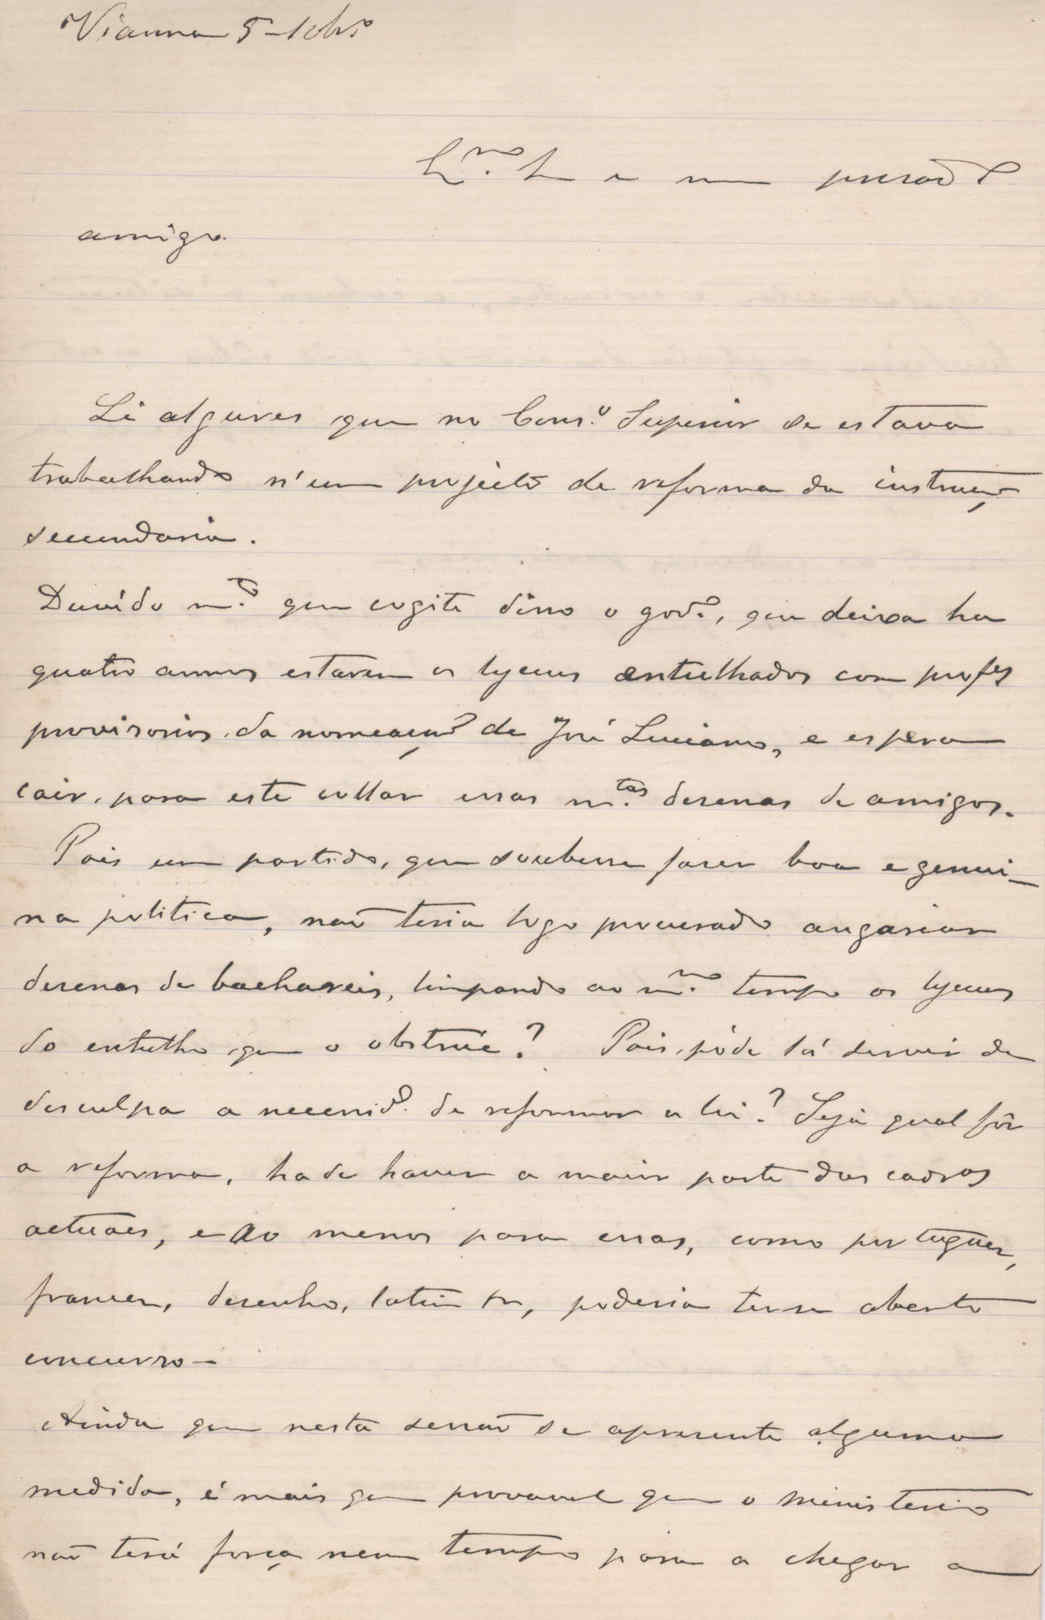 Vianna 5-1obrº
Ex.mo S e meu presado
amigo.
Li algures que no Cons.º Superior se estava
trabalhando n'um projecto de reforma da instrucção
secundaria.
Duvido m.to que cogite d'isso o gov.º, que deixa ha
quatro annos estarem os lyceus entulhados com profes
provisorios da nomeação de José Luciano, e espera
cair, para este collar essas m.tas desenas de amigos.
Pois um partido, que soubesse fazer boa e genui-
na politica, não teria logo procurado angariar
desenas de bachareis, limpando ao m.mo tempo os lyceus
do entulho que o obstrúe? Pois póde lá servir de
desculpa a necessid.e de reformar a lei? Seja qual fôr
a reforma, hade haver a maior parte das cadras
actuaes, e ao menos para essas, como portuguez,
francez, desenho, latim &, poderia ter-se aberto
concurso-
Ainda que nesta sessão se apresente alguma
medida, é mais que provavel que o ministerio
não terá força nem tempo para a chegar a